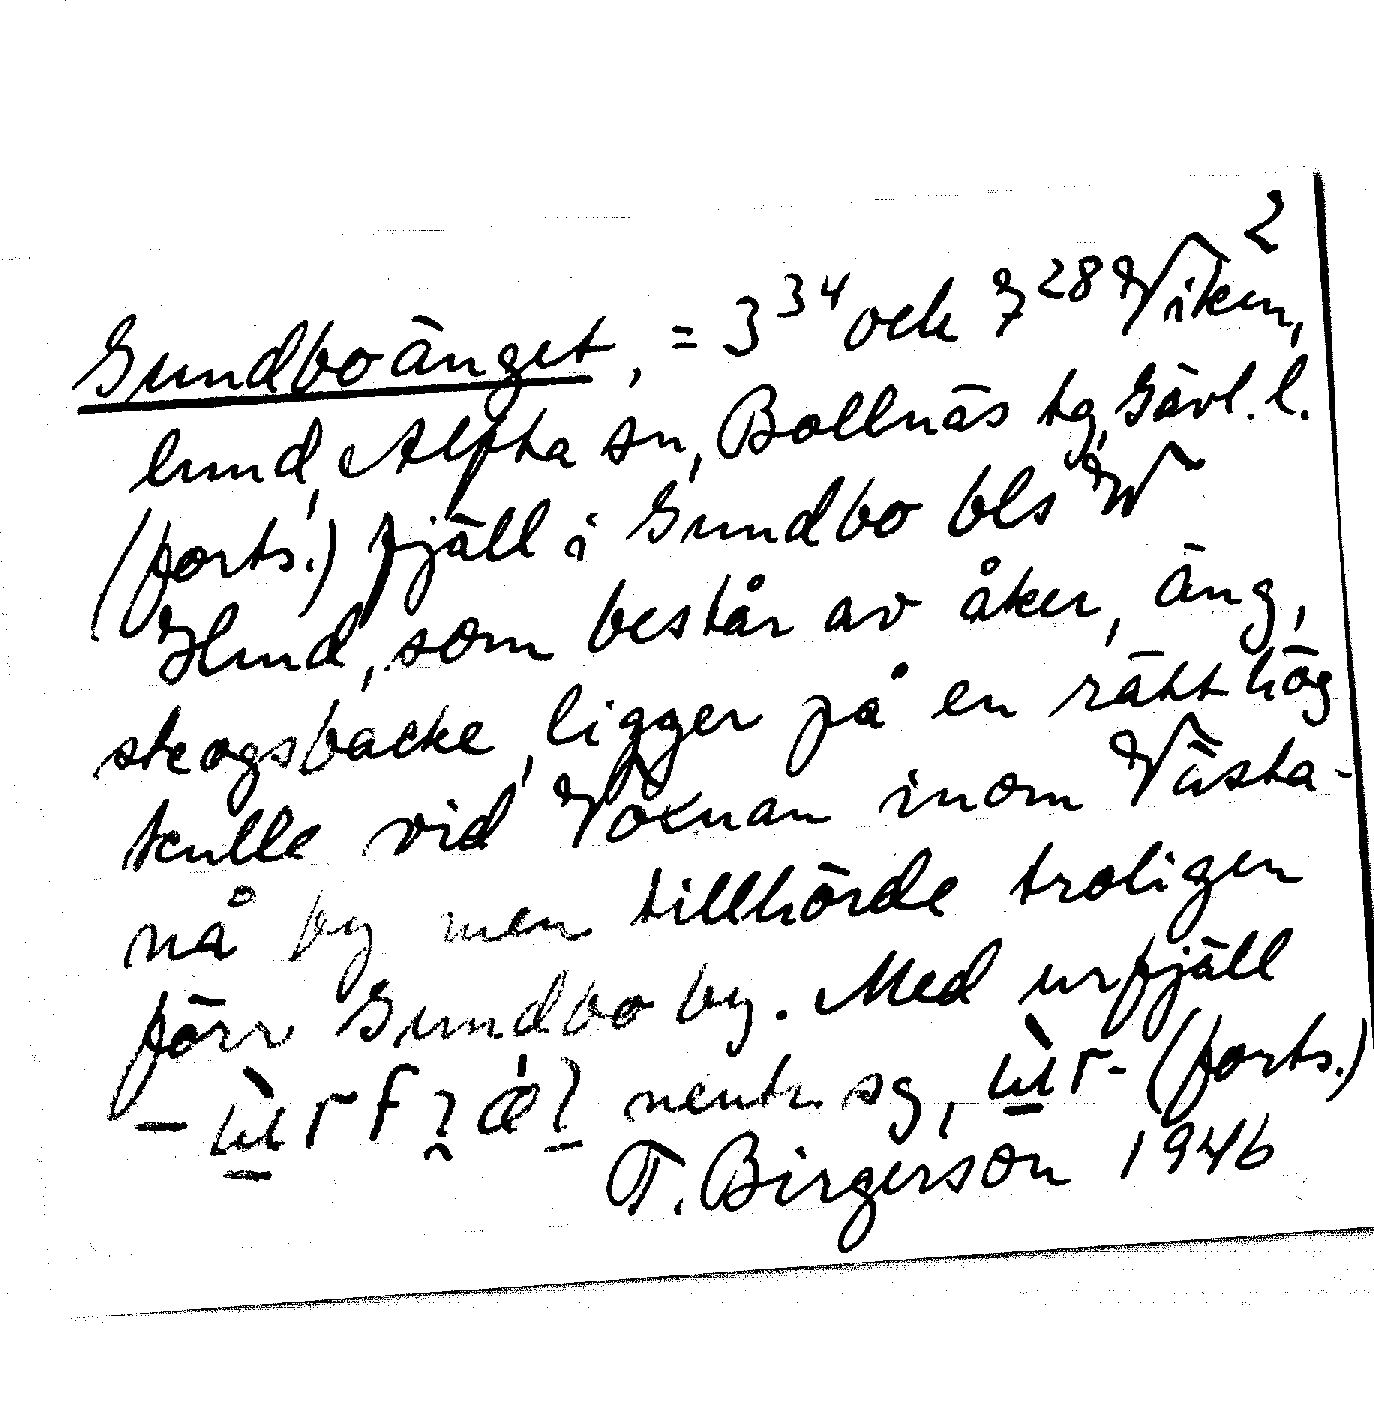 2
Sundboänget, = 3³⁴ och 7²⁸ Viken,
lund, Alfta sn, Bollnäs tg, Gävl. l.
(forts.) fjäll i Sundbo bls W
som består av åker, äng,
skogsbacke, ligger på en rätt hög
kulle vid Voxnan inom Västa-
nå by men tillhörde troligen
förr Sundbo by. Med urfjäll
neutr. sg, (forts.)
T. Birgerson 1946